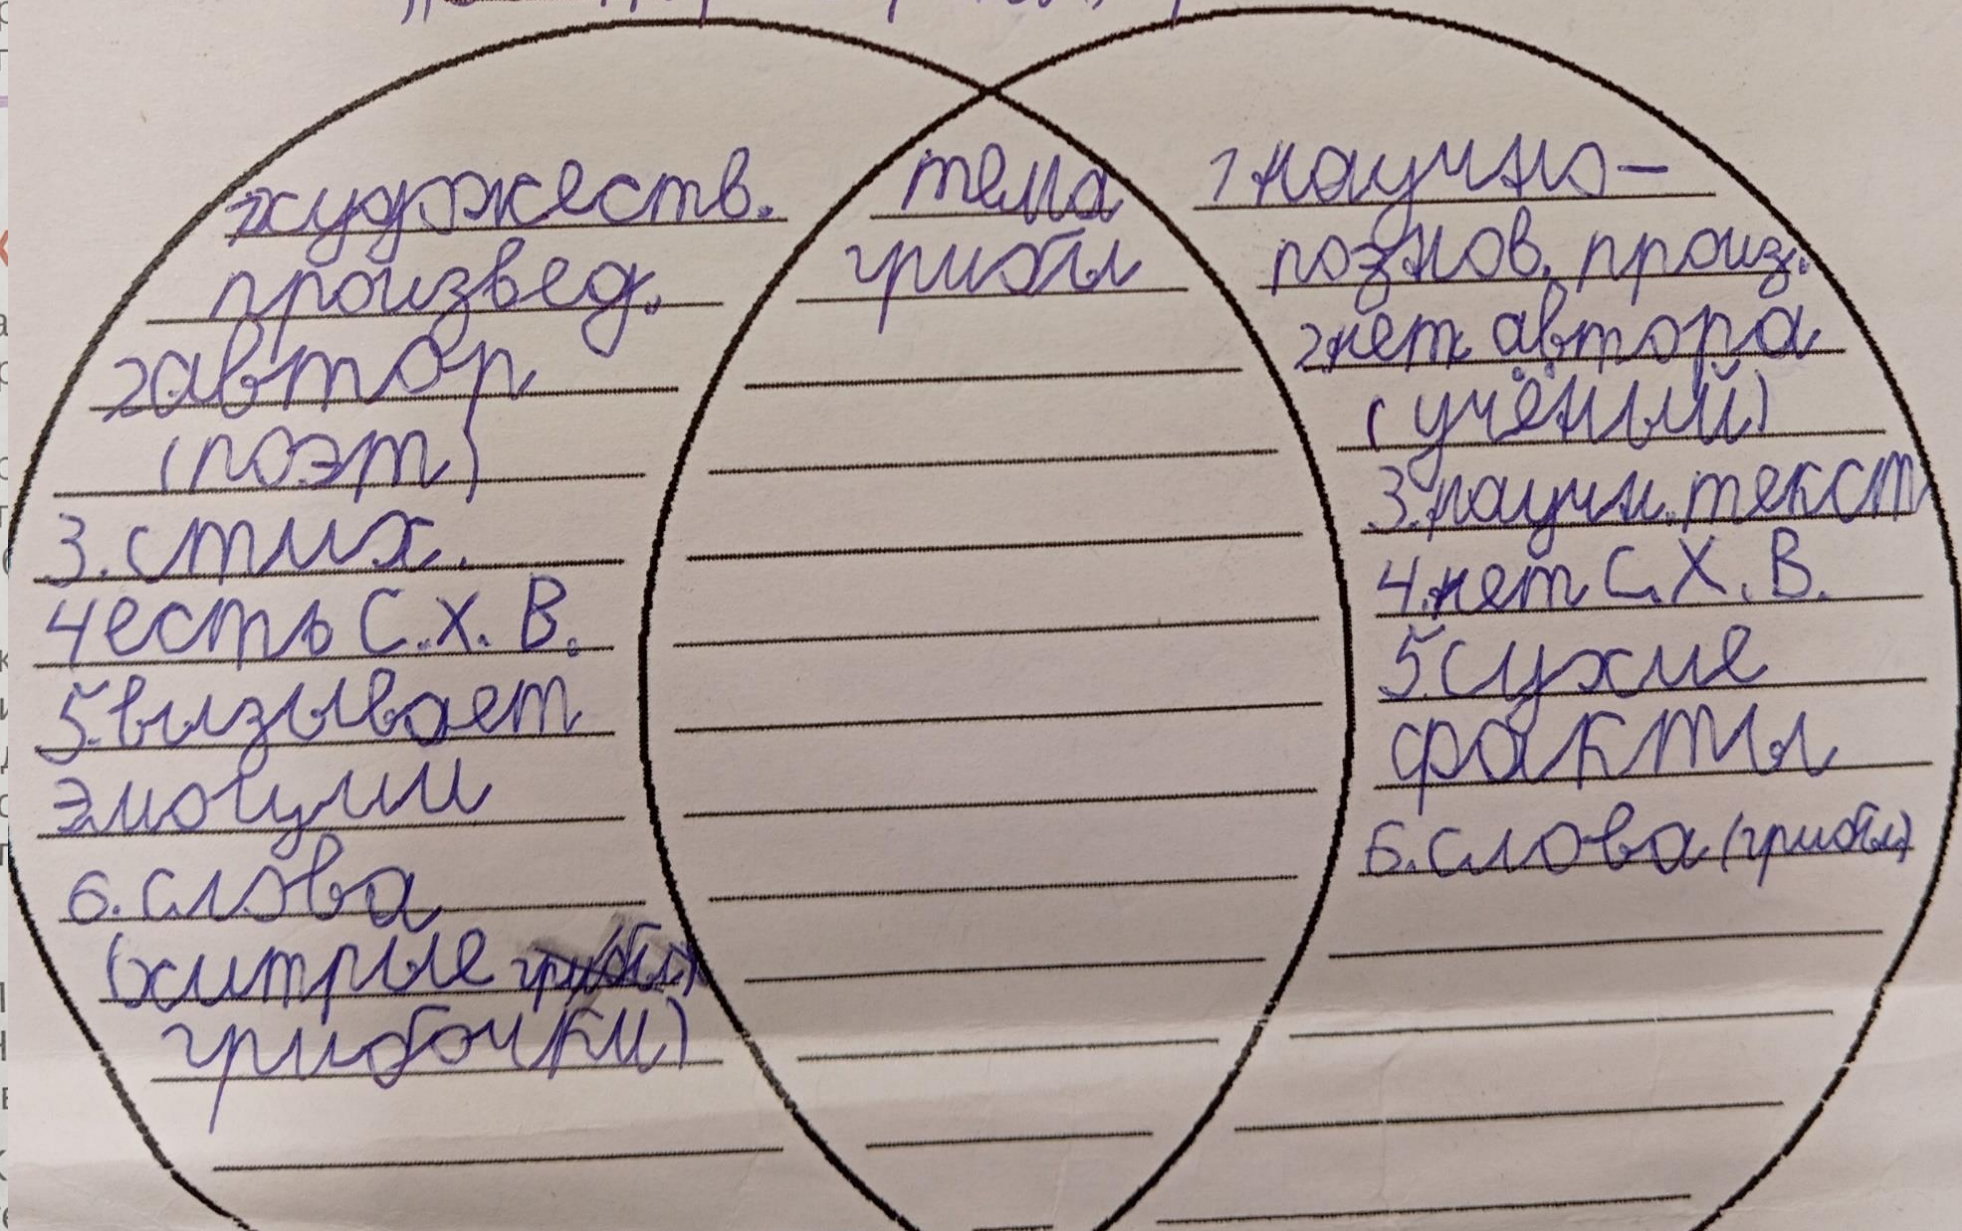 1художеств.
произвед.
2автор
(поэт)
3.стих.
4есть С.Х.В.
5.вызывает
эмоции
6.слова
(хитрые грибы)
грибочки)
тема
грибы
1научно-
познов. произ.
2.нет автора
(учёный)
3.научн.текст
4.нет С.Х.В.
5.сухие
факты
6.слова(грибы)